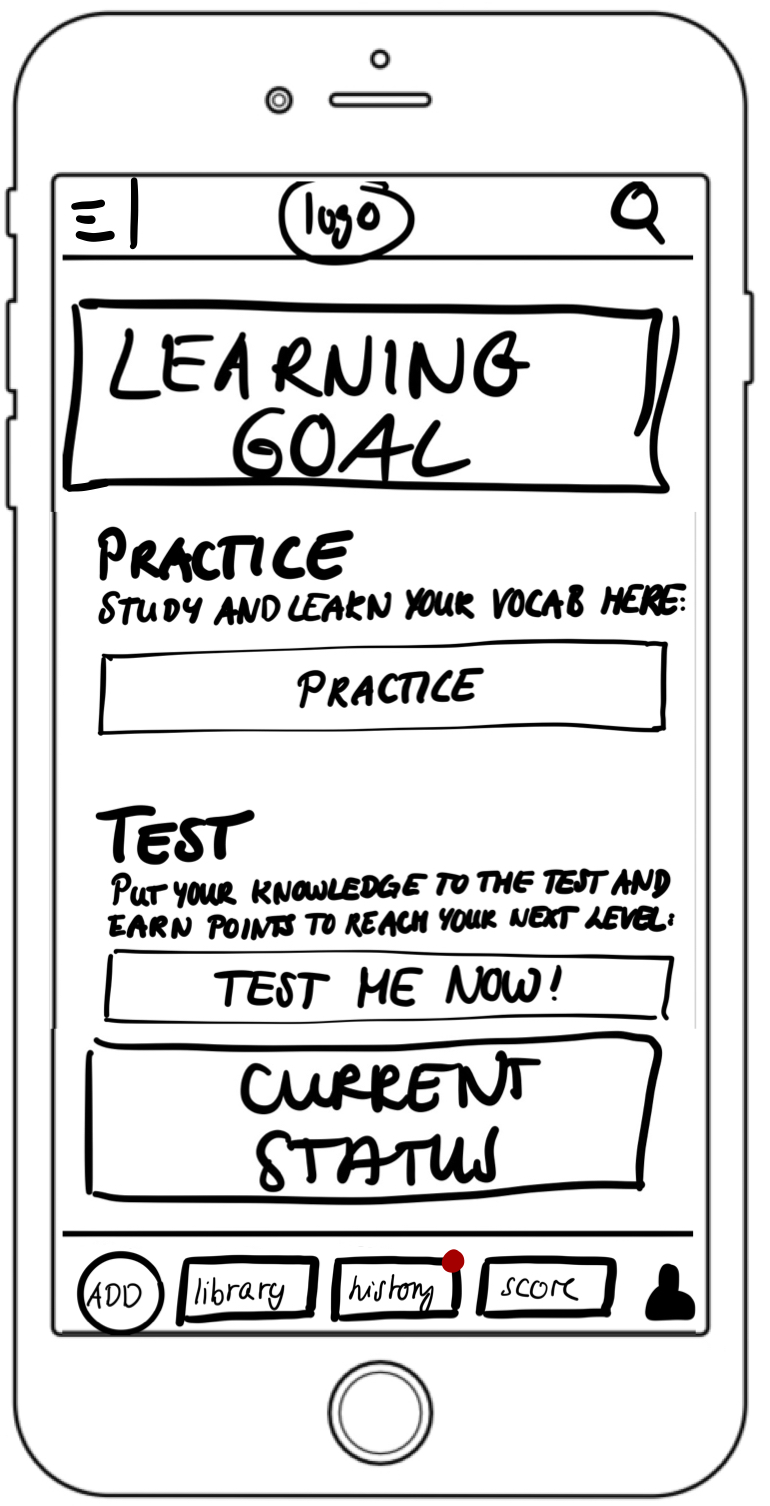 logo
LEARNING
GOAL
PRACTICE
STUDY AND LEARN YOUR VOCAB HERE:
PRACTICE
TEST
PUT YOUR KNOWLEDGE TO THE TEST AND
EARN POINTS TO REACH YOUR NEXT LEVEL:
TEST ME NOW!
CURRENT
STATUS
ADD library history score